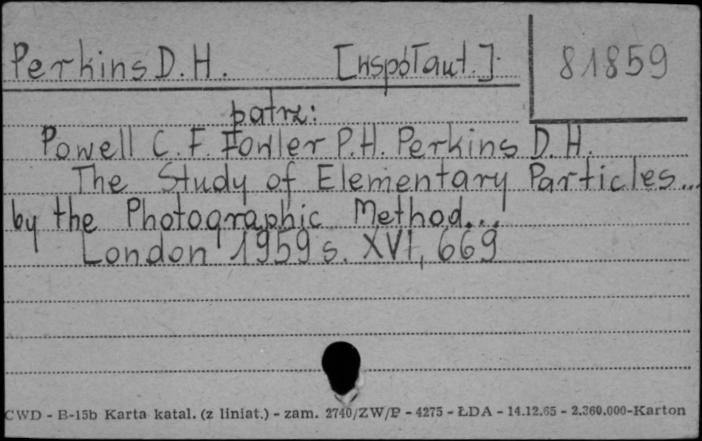 Perkins D. H. [współaut.]. 81859
patrz:
Powell C. F. Fowler P.H. Perkins D. H.
The Study of Elementary Particles...
by the Photographic Method...
London 1959 s. XVI, 669
CWD - B-15b Karta katal. (z liniat.) - zam. 2740/ZW/P - 4275 - ŁDA - 14.12.65 - 2.360.000-Karton